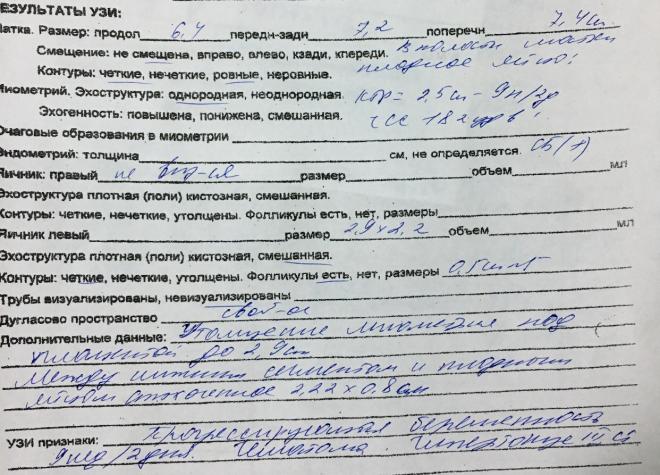 ЕЗУЛЬТАТЫ УЗИ:
Матка. Размер: продол 6,4 передн-задн 7,2 поперечн 7,4 см
Смещение: не смещена, вправо, влево, кзади, кпереди. В полости матки
Контуры: четкие, нечеткие, ровные, неровные. плодное яйцо:
Миометрий. Эхоструктура: однородная, неоднородная. КТР = 2,5 см - 9н/2д
Эхогенность: повышена, понижена, смешанная. ЧСС 182 уд в '
Очаговые образования в миометрии
Эндометрий: толщина см, не определяется. СБ(+)
Яичник: правый не виз-ся размер объем мл
Эхоструктура плотная (поли) кистозная, смешанная.
Контуры: четкие, нечеткие, утолщены. Фолликулы есть, нет, размеры
Яичник левый размер 2,9 х 2,2 объем мл
Эхоструктура плотная (поли) кистозная, смешанная.
Контуры: четкие, нечеткие, утолщены. Фолликулы есть, нет, размеры 0,5
Трубы визуализированы, невизуализированы
Дугласово пространство своб-о
Дополнительные данные: Утолщение миометрия над
плацентой до 2,9 см
Между нижним сегментом и плодным
яйцом отслоение 2,22 х 0,8 см
УЗИ признаки: Прогрессирующая беременность
9нед/2дня. Гематома. Гипертонус